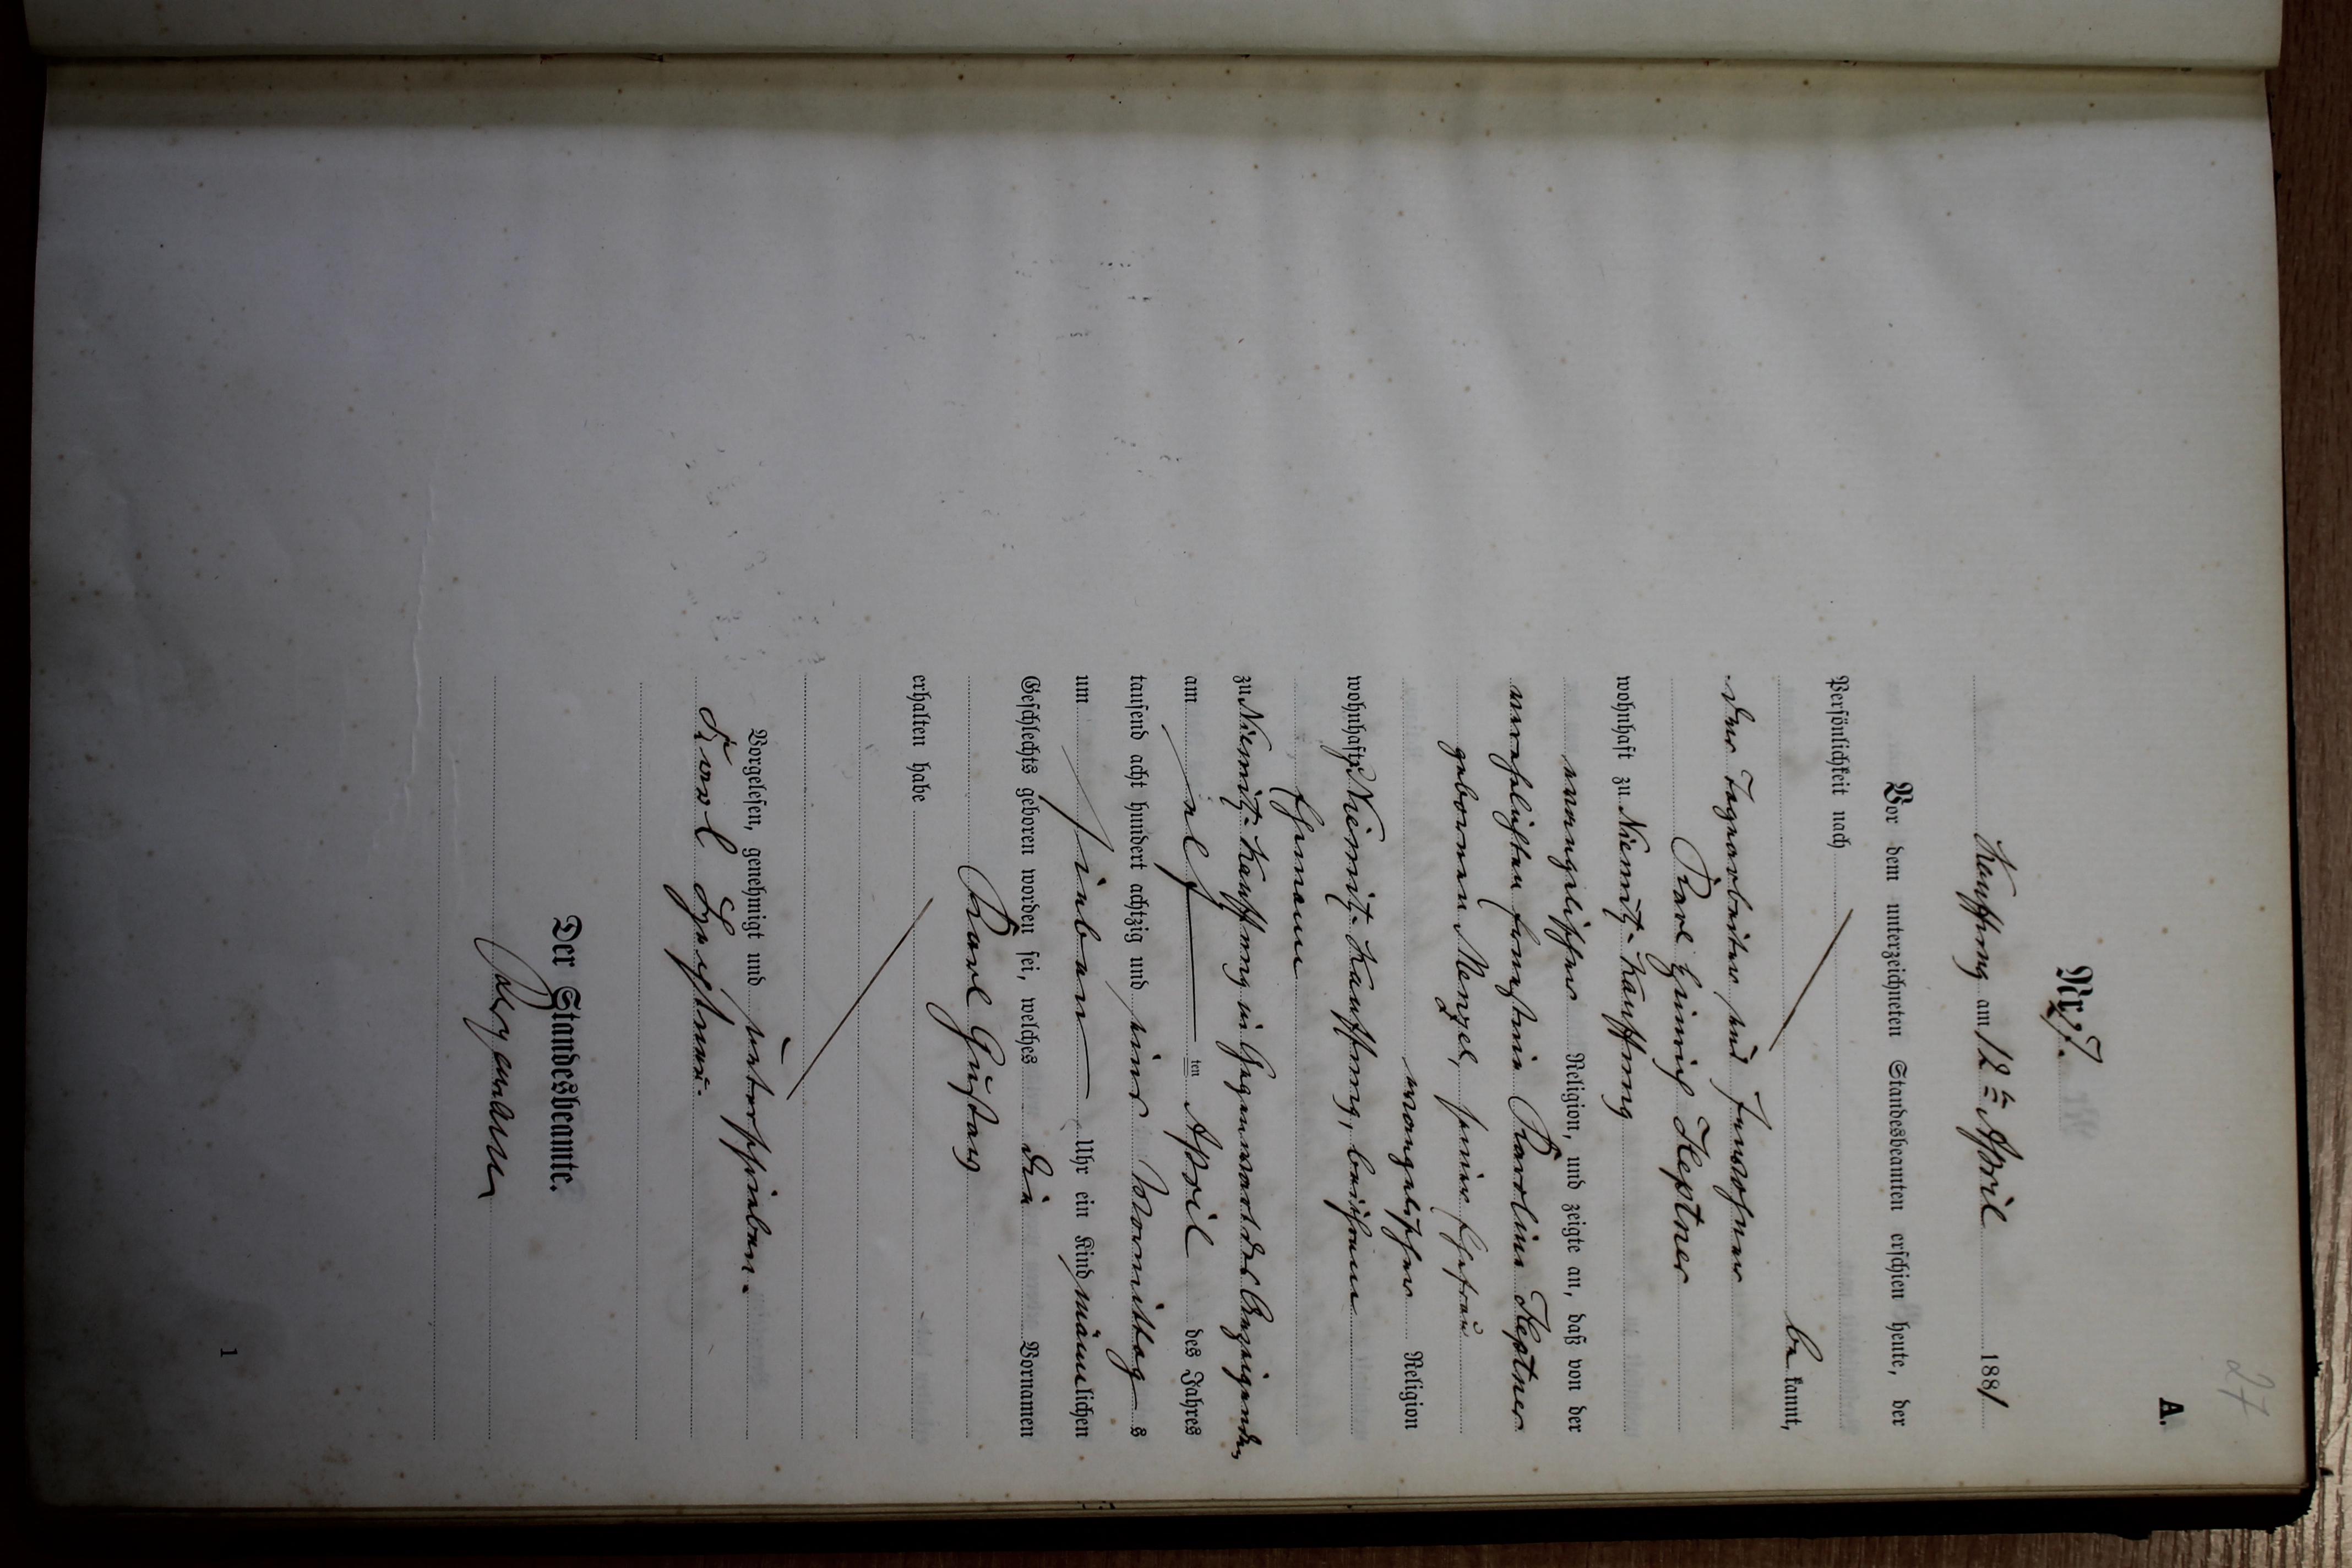 27
A.
Nr. 7.
Kauffung am 12ten April 1881
Vor dem unterzeichneten Standesbeamten erschien heute, der
Persönlichkeit nach
be kannt,
der Tagearbeiter und Inwohner
Karl Heinrich
wohnhaft zu Niemitz-Kauffung
evangelischer Religion, und zeigte an, daß von der
verehelichten Ernstine Karoline
geborenen Menzel, seiner Ehefrau
evangelischer Religion
wohnhaft zu Niemitz-Kauffung, bei ihrem
Ehemann
zu Niemitz-Kauffung in Gegenwart des Anzeigenden
am elf ten April des Jahres
tausend acht hundert achtzig und einer Vormittag s
um sieben Uhr ein Kind männlichen
Geschlechts geboren worden sei, welches die Vornamen
Karl Gustav
erhalten habe
Vorgelesen, genehmigt und unterschrieben.
Karl
Der Standesbeamte.
1